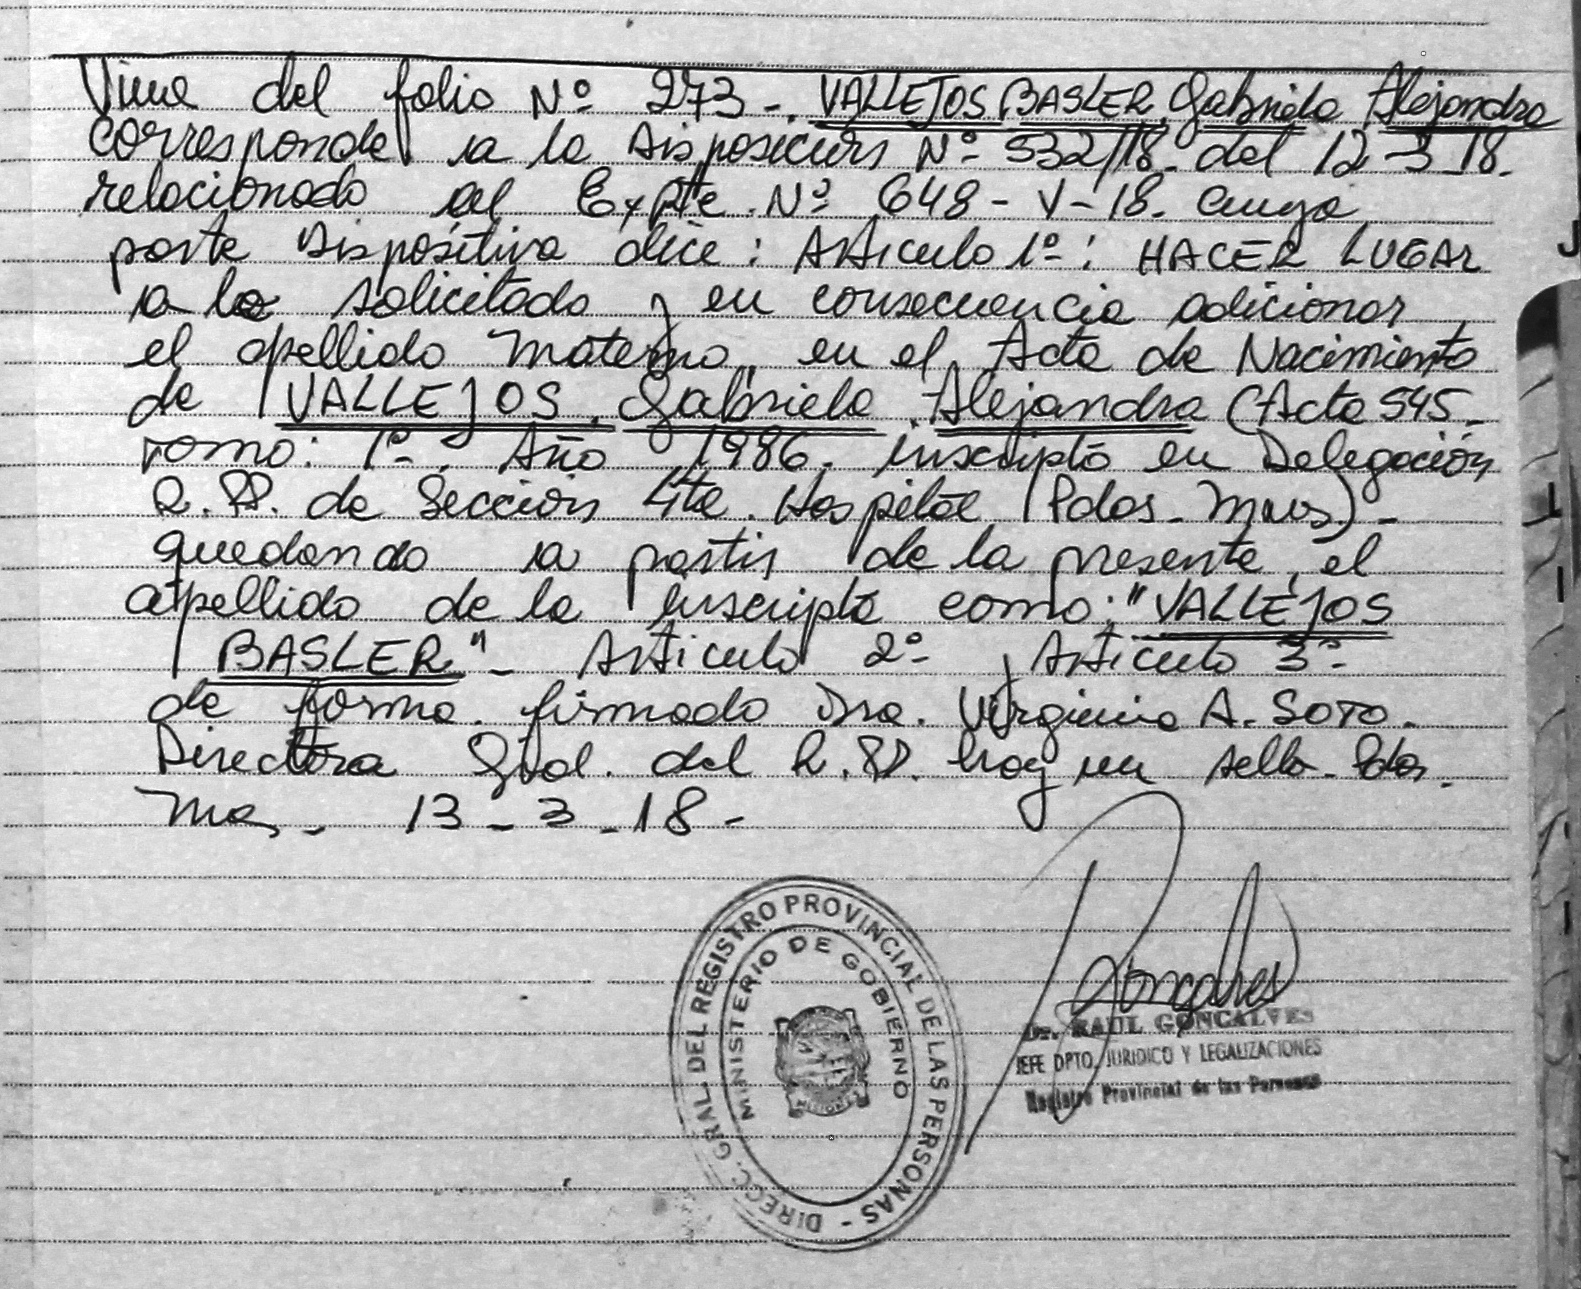 Viene del folio Nº 273 - VALLEJOS BASLER, Gabriela Alejandra
Corresponde a la Disposicion Nº 532/18 del 12-3-18.
relacionado al Expte. Nº 648-V-18. cuya
parte dispositiva dice: Articulo 1º: HACER LUGAR
a lo solicitado y en consecuencia adicionar
el apellido Materno, en el Acta de Nacimiento
de VALLEJOS, Gabriela Alejandra (Acta 545-
Tomo: 1º - Año 1986. inscripta en Delegación
R.P.P. de Sección 4ta. Hospital (Pdas-Mnes) -
quedando a partir de la presente, el
apellido de la inscripta como: "VALLEJOS
BASLER" - Articulo 2º y Articulo 3º
de forma. firmado Dra. Virginia A. SOTO.
Directora Gral. del R.P.P. hay un sello - Pdas.
Mnes - 13-3-18 -
DIRECC. GRAL. DEL REGISTRO PROVINCIAL DE LAS PERSONAS -
MINISTERIO DE GOBIERNO
MISIONES
Dr. RAUL GONCALVES
JEFE DPTO. JURIDICO Y LEGALIZACIONES
Registro Provincial de las Personas